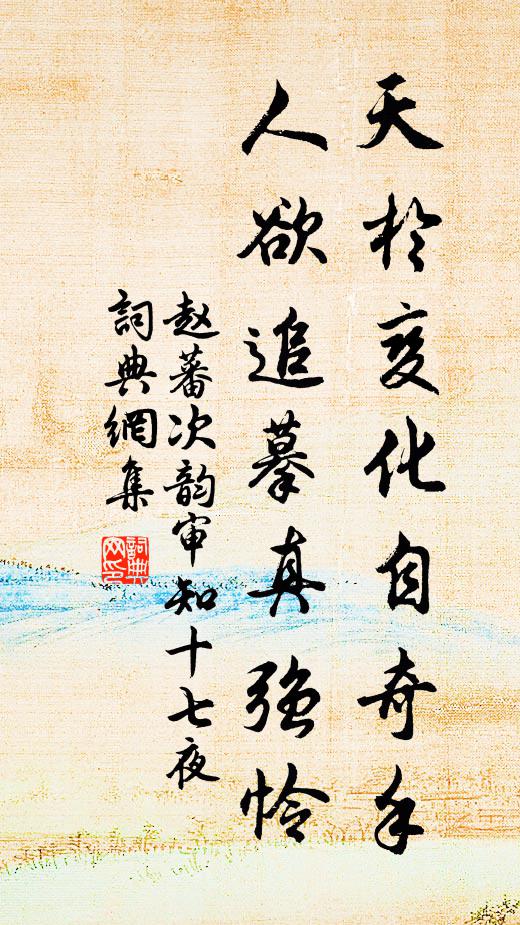 天於变化自奇手
人欲追摹真强怜
赵蕃次韵审知十七夜
詞典網集
詞典网印